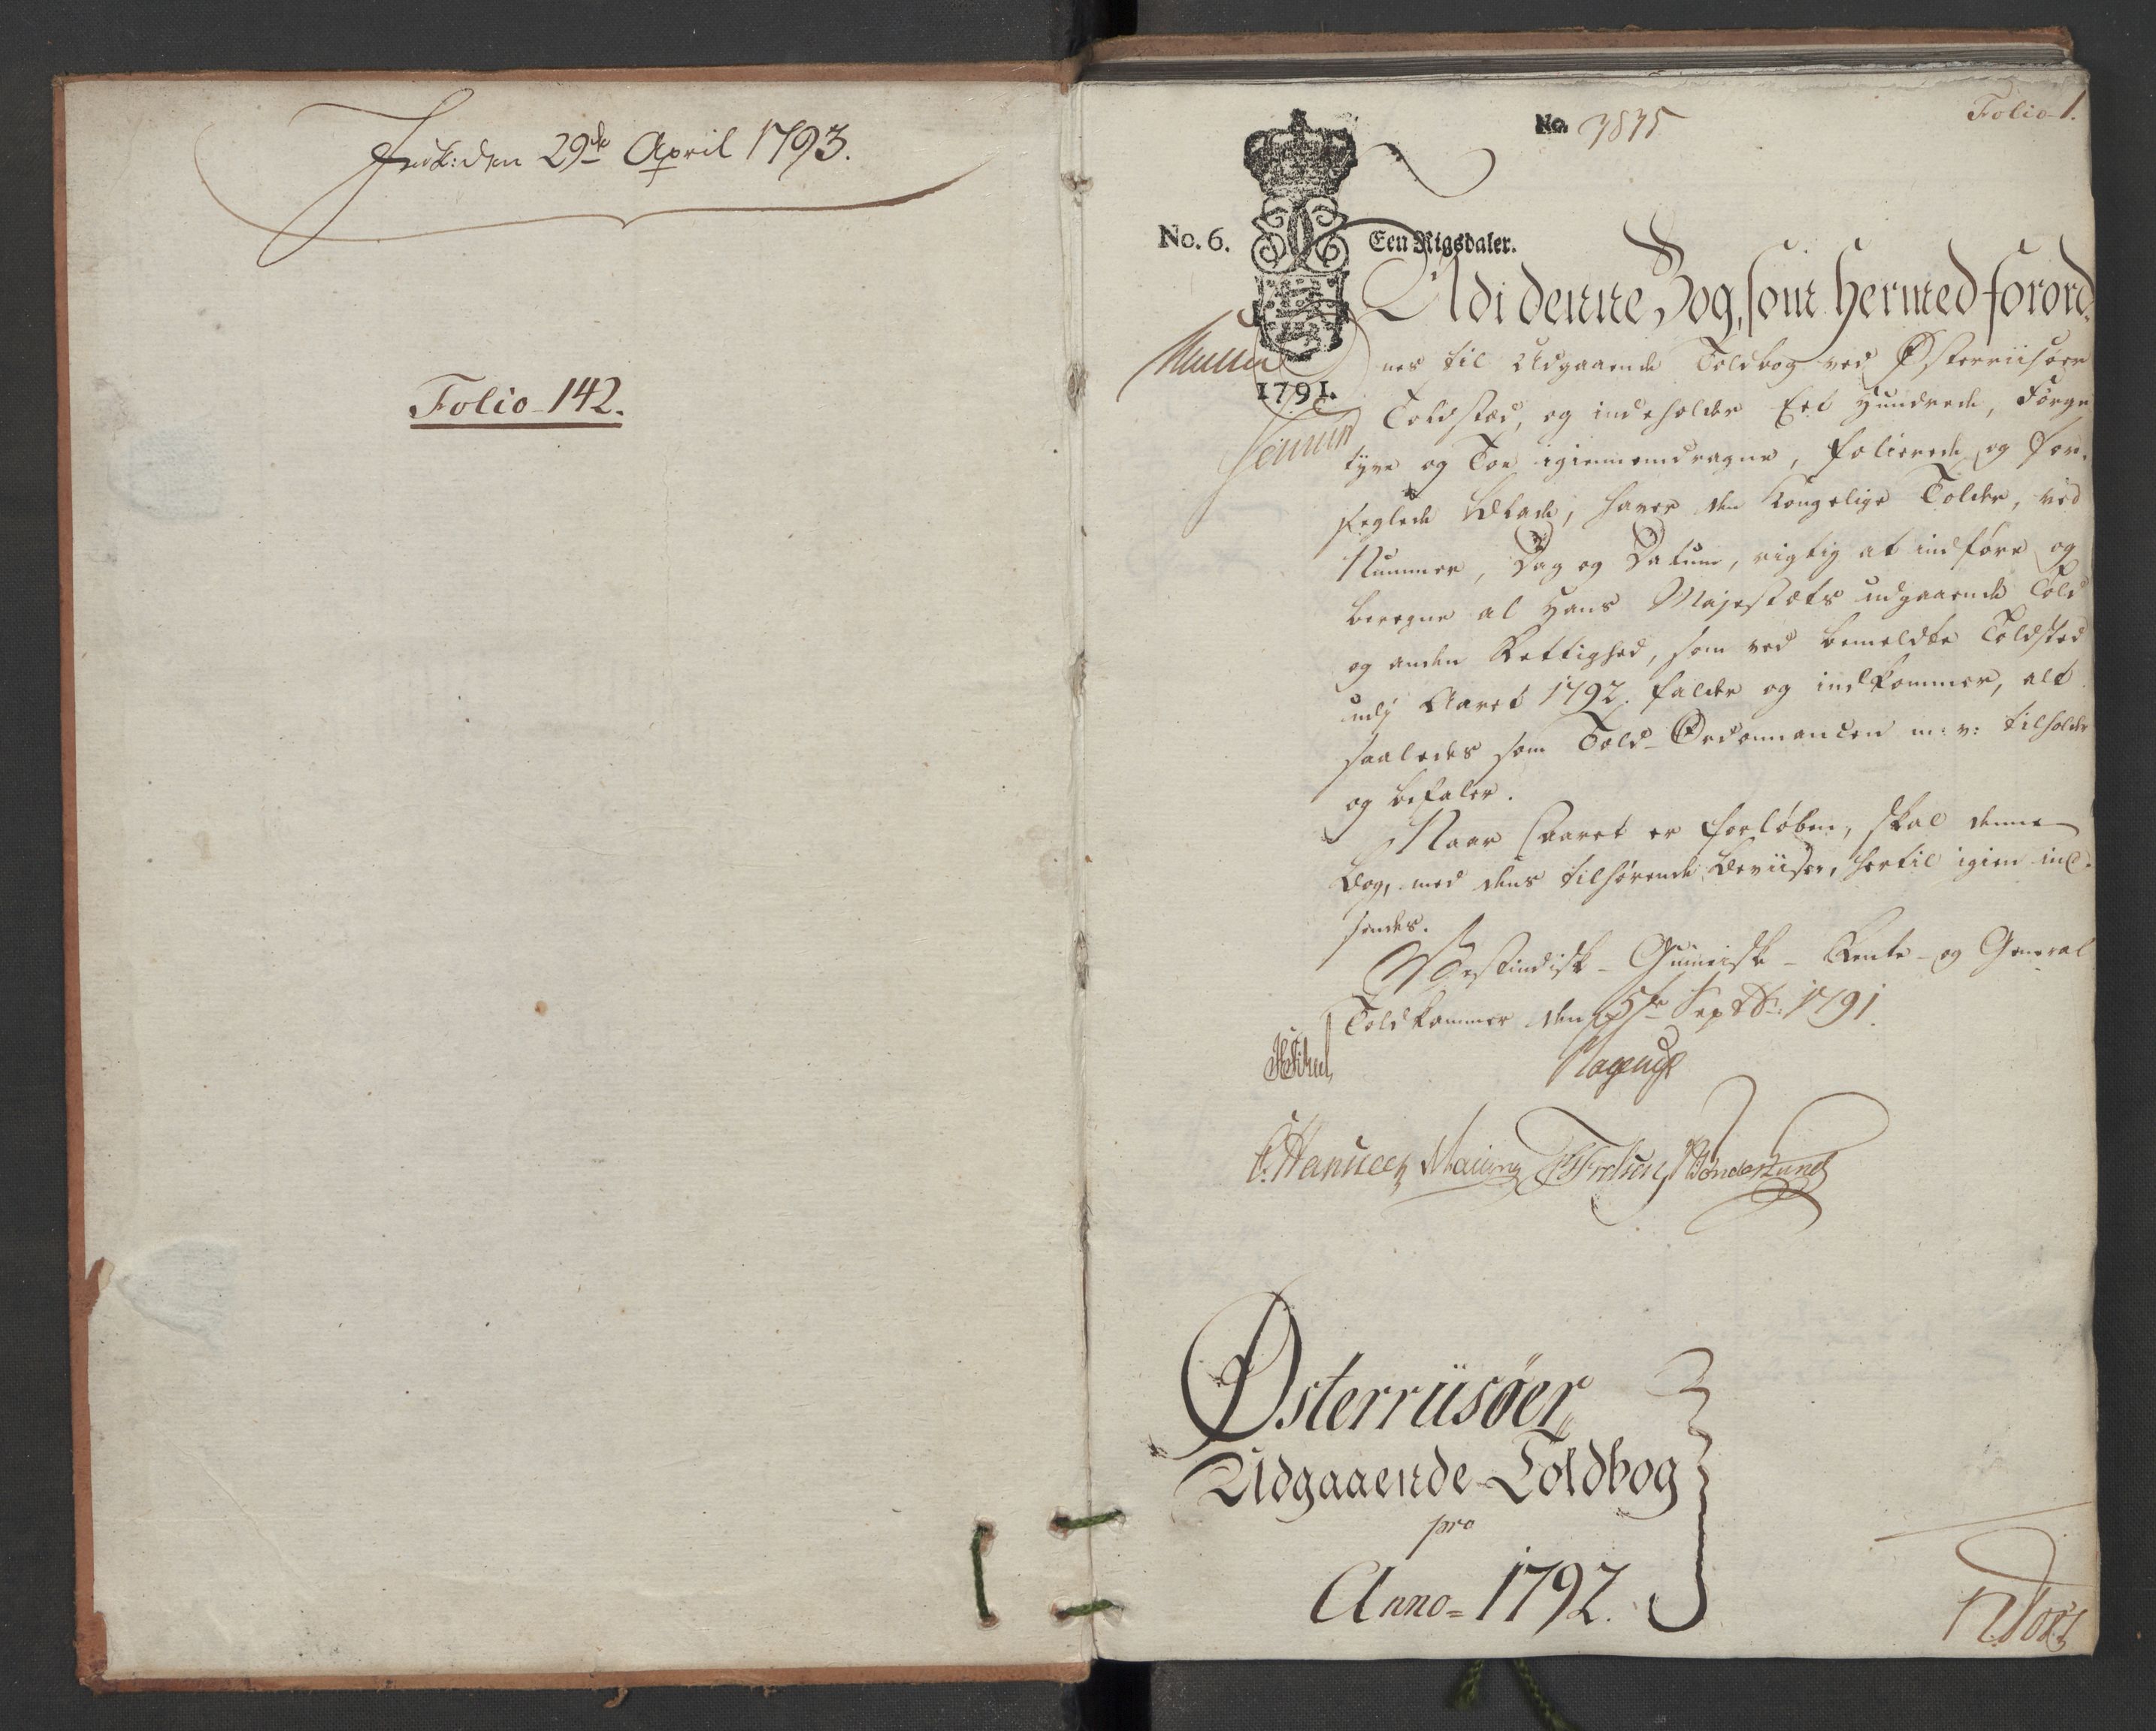 Indk: den 29de April 1793.
Folio 142.
Folio 1.
No. 7875
No. 6. Een Rigsdaler.
1791.
Udi denne Bog, som hermed forord,
nes til Udgaaende Toldbog ved Østerriisøer
Toldsted, og indeholder Eet Hundrede, Förge
tyve og Toe igiennemdragne, folierede og for,
seglede Blade, haver den Kongelige Tolder, ved
Nummer, Dag og Datum, rigtig at indføre og
beregne al Hans Majestæts udgaaende Told
og anden Rettighed, som ved bemeldte Toldsted
udj Aaret 1792. falder og indkommer, alt
saaledes som Told-Ordonnancen m: v: tilholder
og befaler.
Naar Aaret er forløben, skal denne
Bog, med dens tilhørende Beviiser, hertil igien ind,
sendes.
Vestindisk- Guineisk- Rente- og General
Toldkammer den 5te Septbr: 1791.
Østerriisøer
Udgaaende Toldbog
pro
Anno= 1792.